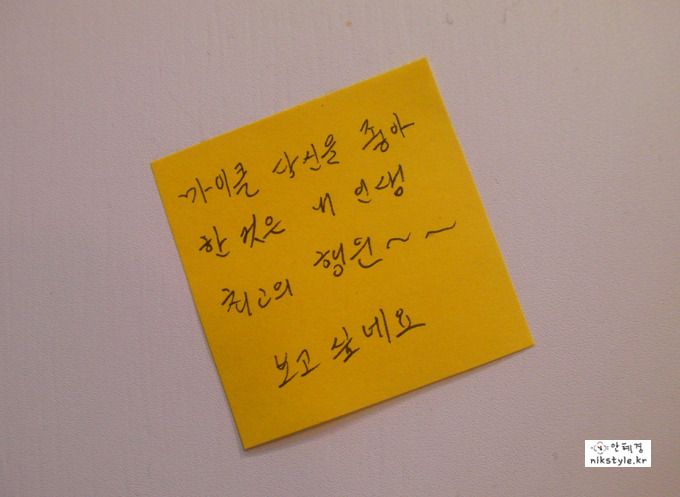 마이클 당신을 좋아
한 것은 내 인생
최고의 행운~~
보고 싶네요
안혜경
nikstyle.kr